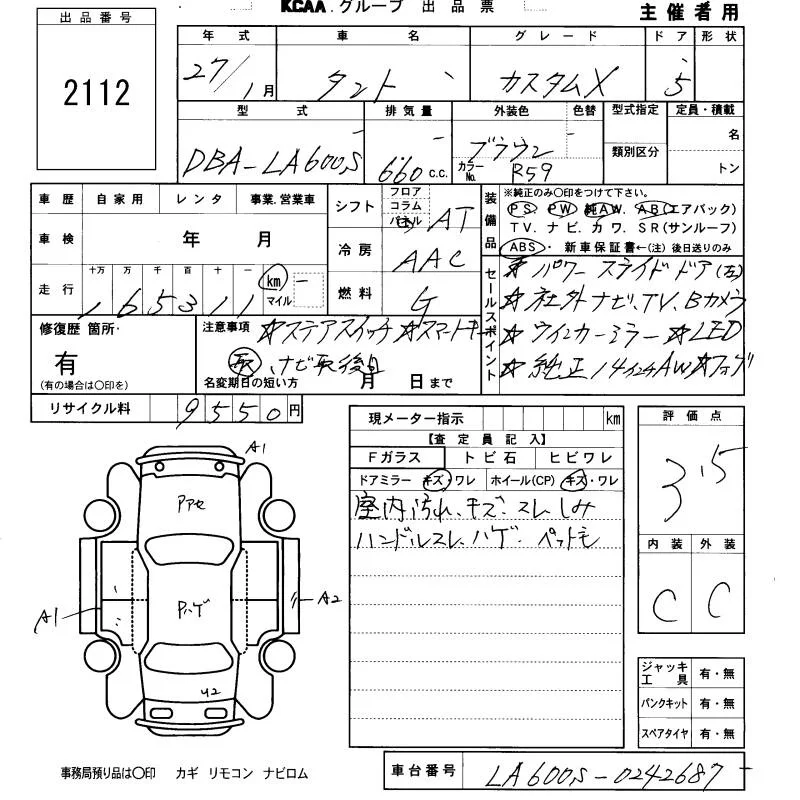 KCAA.グループ 出品票
主催者用
出品番号
2112
年式 車名 グレード ドア 形状
27/1月 タント カスタムX 5
型式 排気量 外装色 色替 型式指定 定員・積載
DBA-LA600S 660 c.c. ブラウン カラーNo. R59 類別区分 名 トン
車歴 自家用 レンタ 事業.営業車
車検 年 月
走行 十万 万 千 百 十 一 km マイル
165311
シフト フロア コラム パネル AT
冷房 AAC
燃料 G
装備品 ※純正のみ○印をつけて下さい。
PS. PW. 純AW. AB(エアバック)
TV. ナビ. カワ. SR(サンルーフ)
ABS・ 新車保証書←(注)後日送りのみ
セールスポイント
☆パワースライドドア(左)
☆社外ナビ、TV、Bカメラ
☆ウインカーミラー ☆LED
☆純正14インチAW ☆フォグ
修復歴 箇所・
有
(有の場合は○印を)
注意事項 ☆ステアスイッチ ☆スマートキー
取、ナビ取後日
名変期日の短い方 月 日まで
リサイクル料 9550円
現メーター指示 km
【査定員記入】
Fガラス トビ石 ヒビワレ
ドアミラー キズ・ワレ ホイール(CP) キズ・ワレ
室内汚れ、キズ、スレ、しみ
ハンドルスレ、ハゲ、ペット毛
評価点
3.5
内装 外装
C C
A1
Pアセ
A1
Pハゲ
A2
U2
ジャッキ工具 有・無
パンクキット 有・無
スペアタイヤ 有・無
事務局預り品は○印 カギ リモコン ナビロム
車台番号 LA600S-0242687